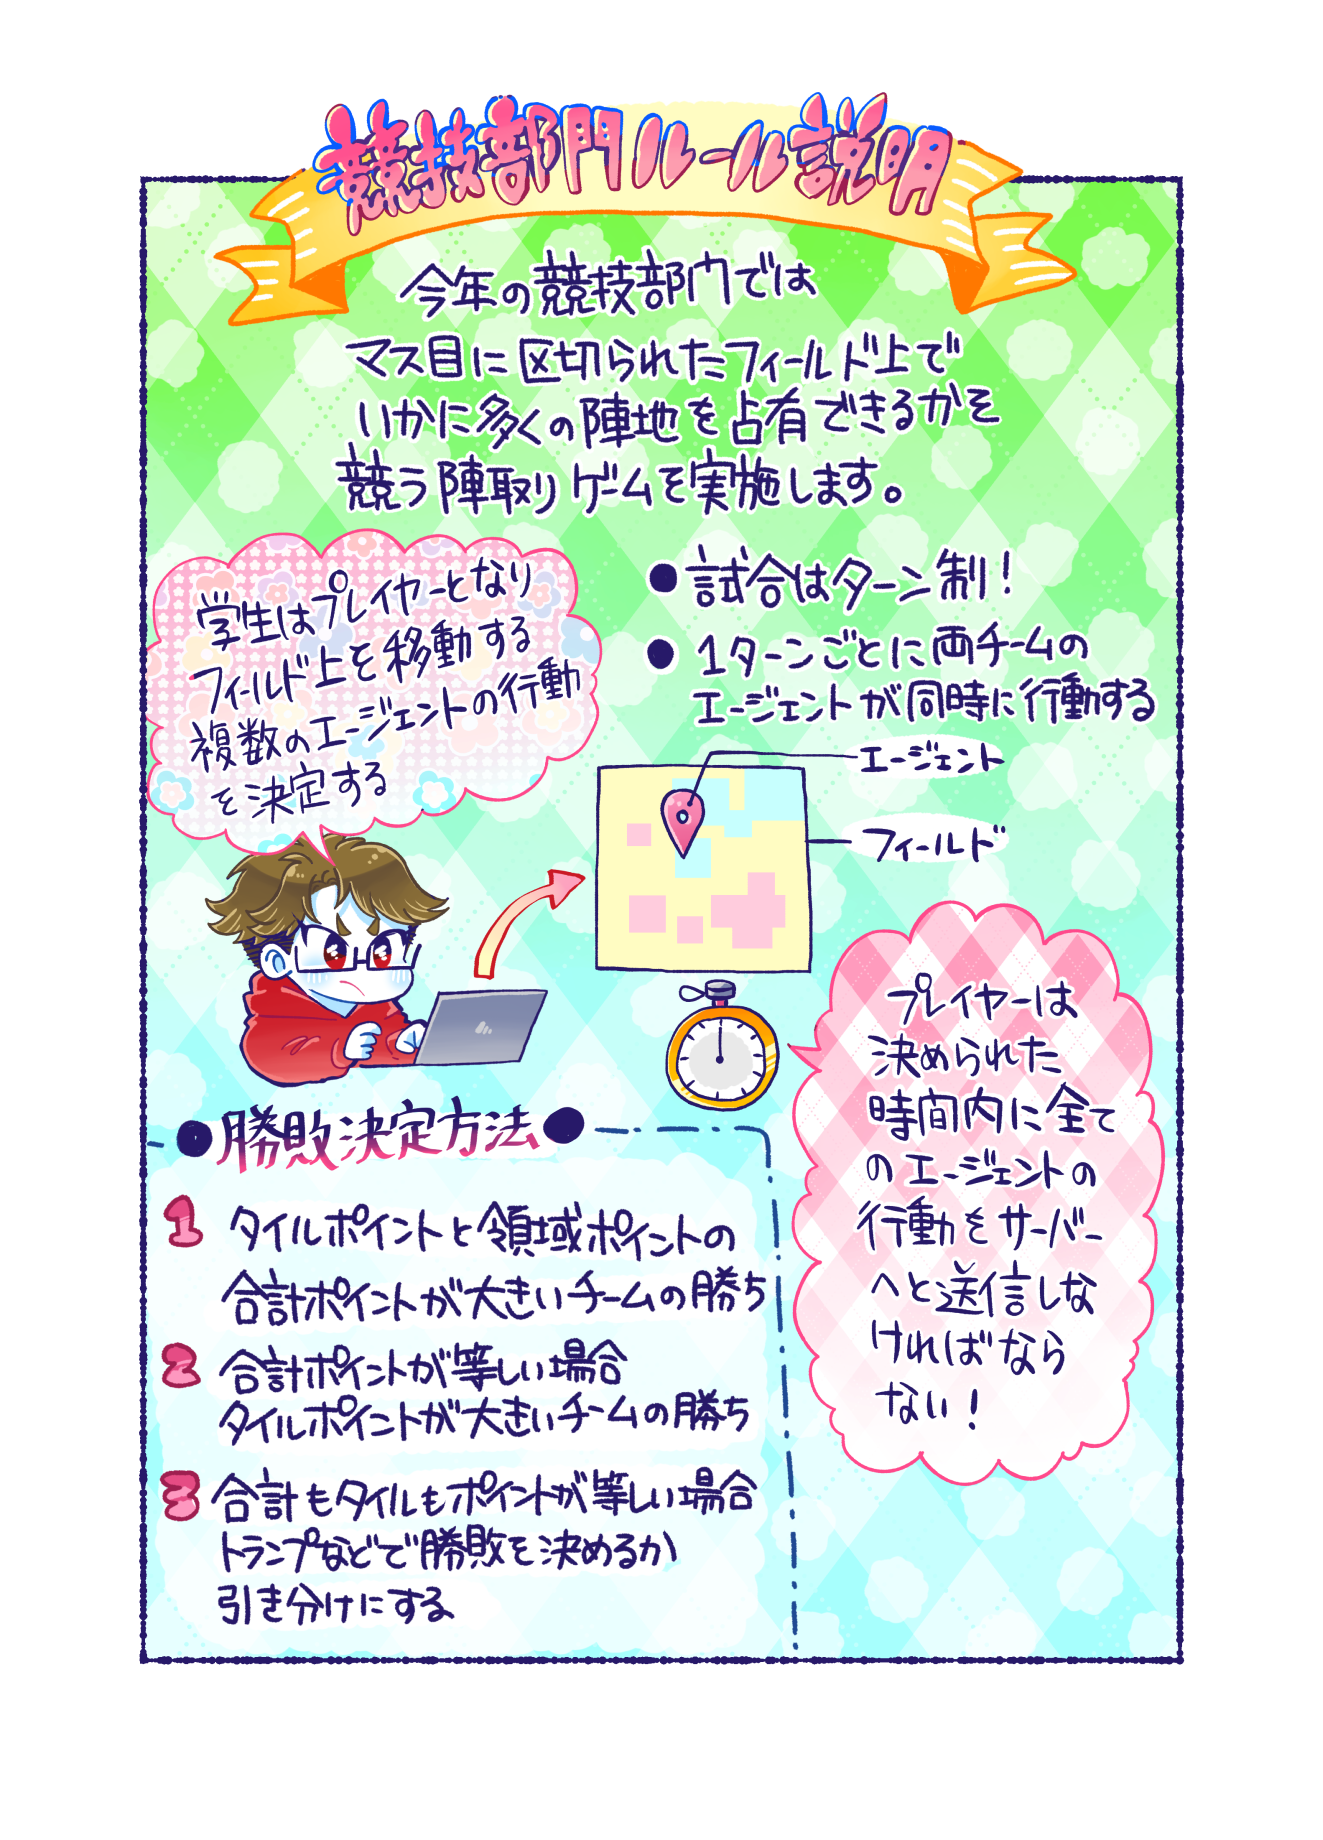 競技部門ルール説明
今年の競技部門では
マス目に区切られたフィールド上で
いかに多くの陣地を占有できるかを
競う陣取りゲームを実施します。
学生はプレイヤーとなり
フィールド上を移動する
複数のエージェントの行動
を決定する
●試合はターン制!
●1ターンごとに両チームの
エージェントが同時に行動する
エージェント
フィールド
プレイヤーは
決められた
時間内に全て
のエージェントの
行動をサーバー
へと送信しな
ければなら
ない!
●勝敗決定方法●
1 タイルポイントと領域ポイントの
合計ポイントが大きいチームの勝ち
2 合計ポイントが等しい場合
タイルポイントが大きいチームの勝ち
3 合計もタイルもポイントが等しい場合
トランプなどで勝敗を決めるか
引き分けにする